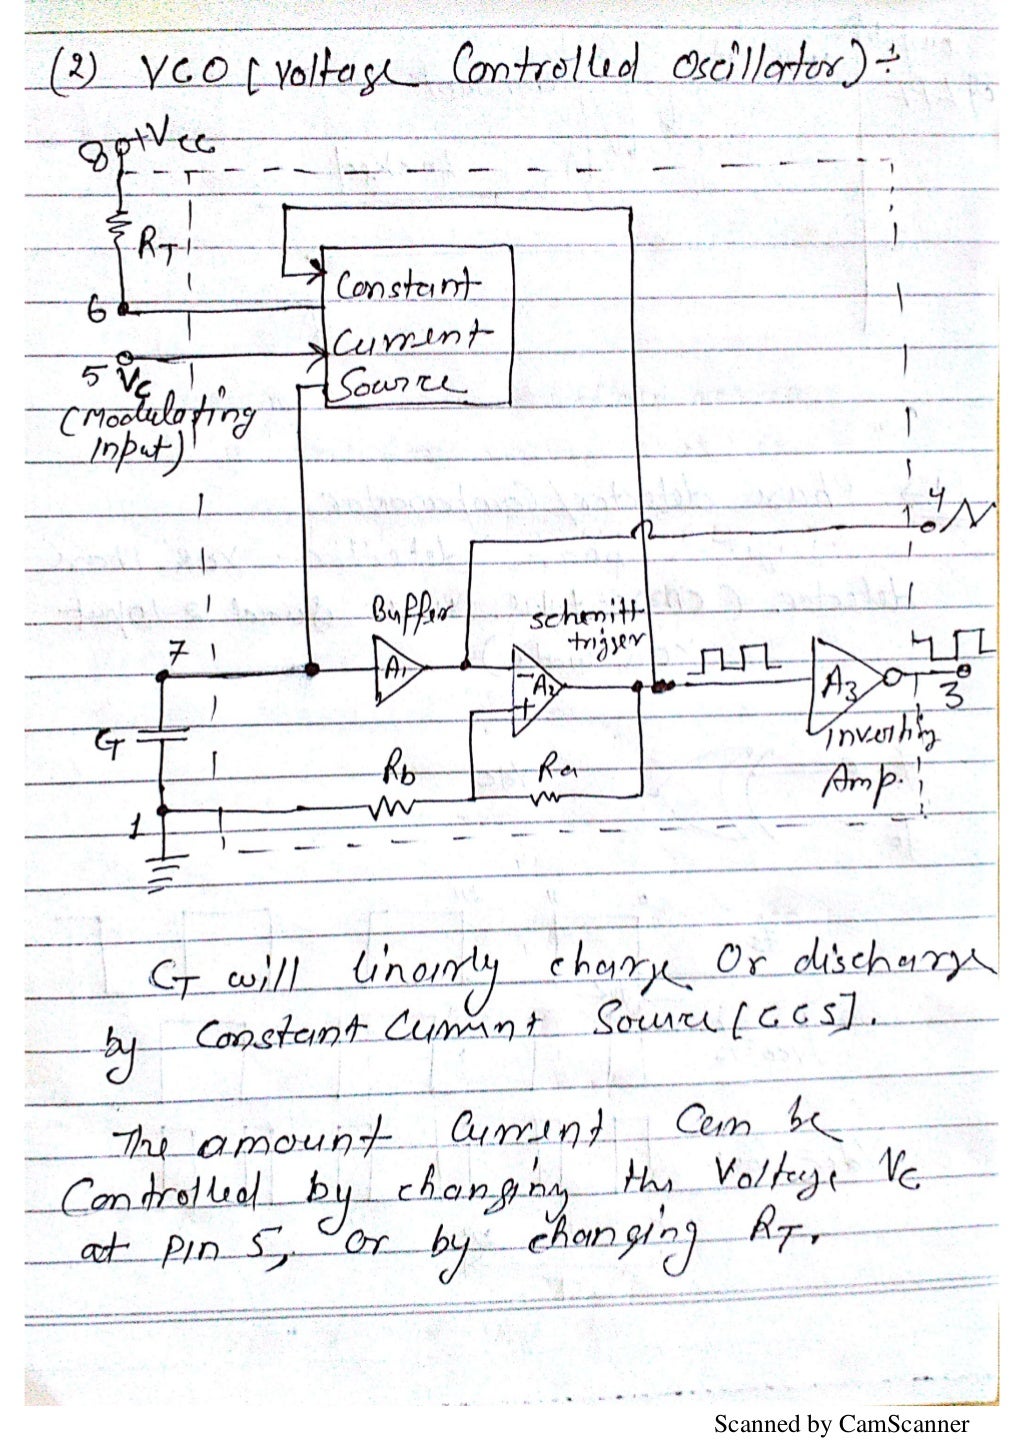 (2) VCO [Voltage Controlled Oscillator) ÷
8 +Vcc
RT
6
Constant
Current
Source
5 Vc
(Modulating
Input)
4
Buffer
schmitt
trigger
7
A1
- A2
+
A3
3
Inverting
Amp.
CT
Rb
Ra
1
CT will linearly charge Or discharge
by Constant Current Source [CCS].
The amount Current Can be
Controlled by changing the Voltage Vc
at Pin 5, or by changing RT.
Scanned by CamScanner